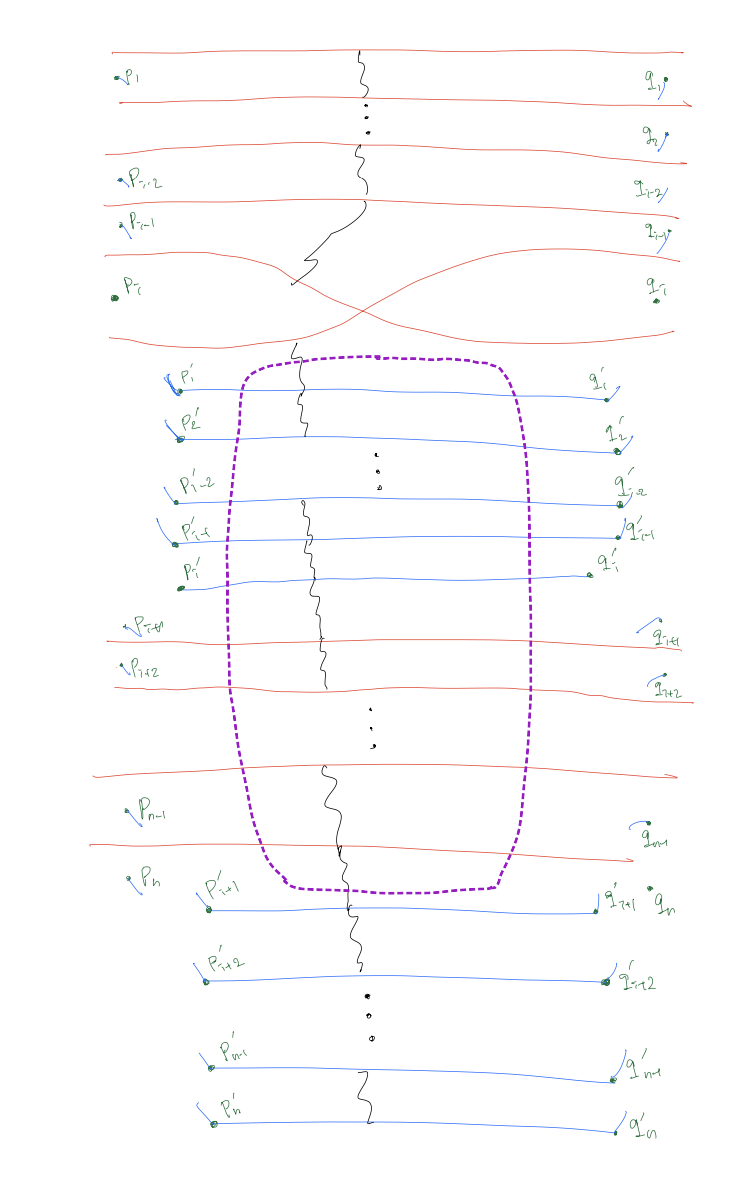 p₁ q₁
q₂
pᵢ₋₂ qᵢ₋₂
pᵢ₋₁ qᵢ₋₁
pᵢ qᵢ
p₁′ q₁′
p₂′ q₂′
pᵢ₋₂′ qᵢ₋₂′
pᵢ₋₁′ qᵢ₋₁′
pᵢ′ qᵢ′
pᵢ₊₁ qᵢ₊₁
pᵢ₊₂ qᵢ₊₂
pₙ₋₁ qₙ₋₁
pₙ qₙ
pᵢ₊₁′ qᵢ₊₁′
pᵢ₊₂′ qᵢ₊₂′
pₙ₋₁′ qₙ₋₁′
pₙ′ qₙ′